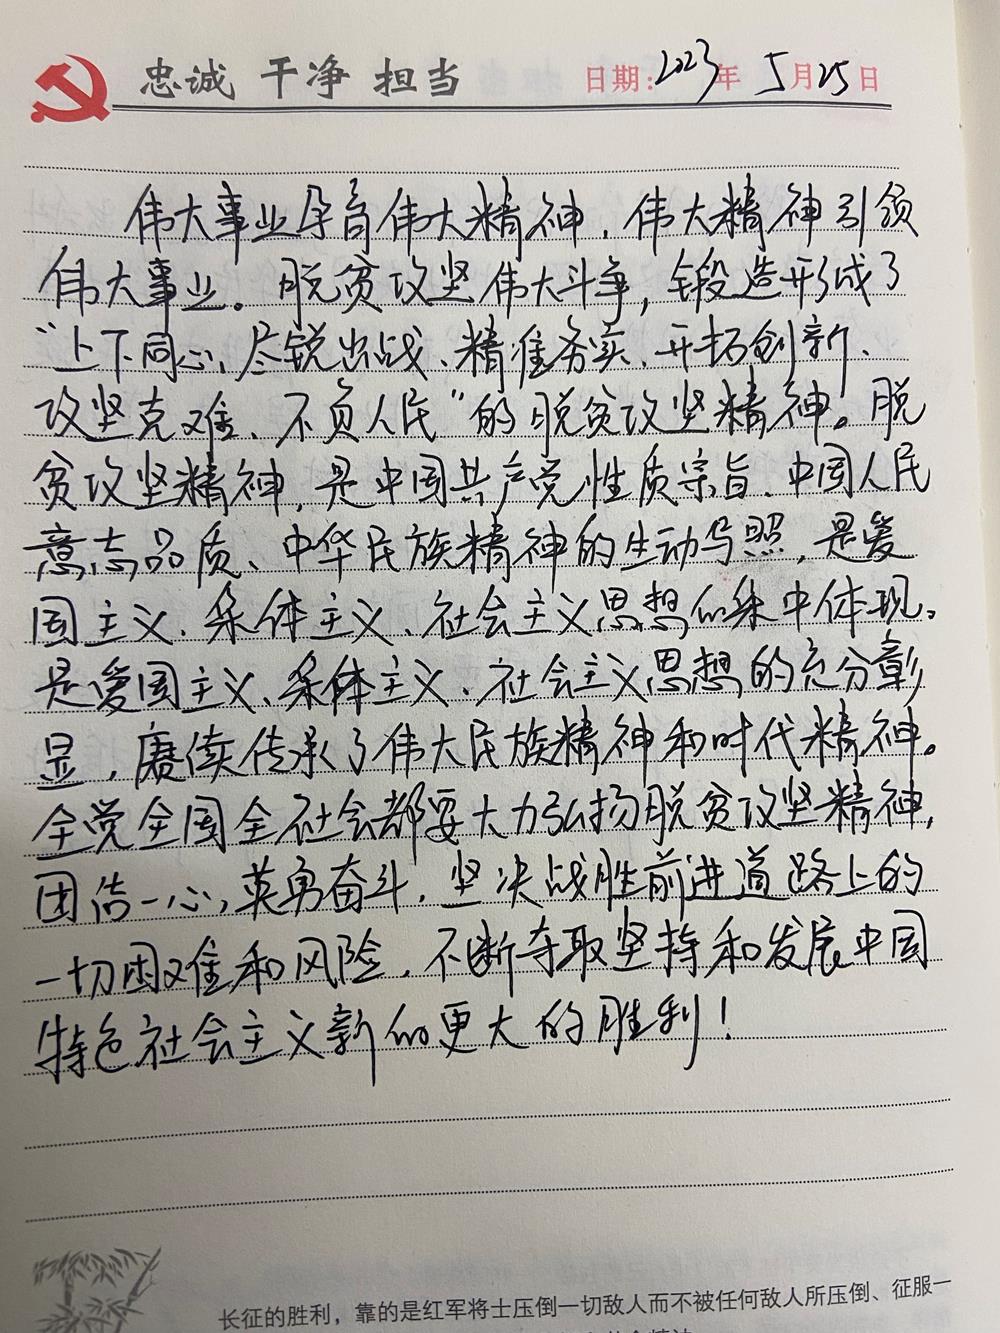 忠诚 干净 担当
日期:2023年5月25日
伟大事业孕育伟大精神,伟大精神引领
伟大事业。脱贫攻坚伟大斗争,锻造形成了
“上下同心、尽锐出战、精准务实、开拓创新、
攻坚克难、不负人民”的脱贫攻坚精神。脱
贫攻坚精神,是中国共产党性质宗旨、中国人民
意志品质、中华民族精神的生动写照,是爱
国主义、集体主义、社会主义思想的集中体现。
是爱国主义、集体主义、社会主义思想的充分彰
显,赓续传承了伟大民族精神和时代精神。
全党全国全社会都要大力弘扬脱贫攻坚精神,
团结一心,英勇奋斗,坚决战胜前进道路上的
一切困难和风险,不断夺取坚持和发展中国
特色社会主义新的更大的胜利!
长征的胜利,靠的是红军将士压倒一切敌人而不被任何敌人所压倒、征服一